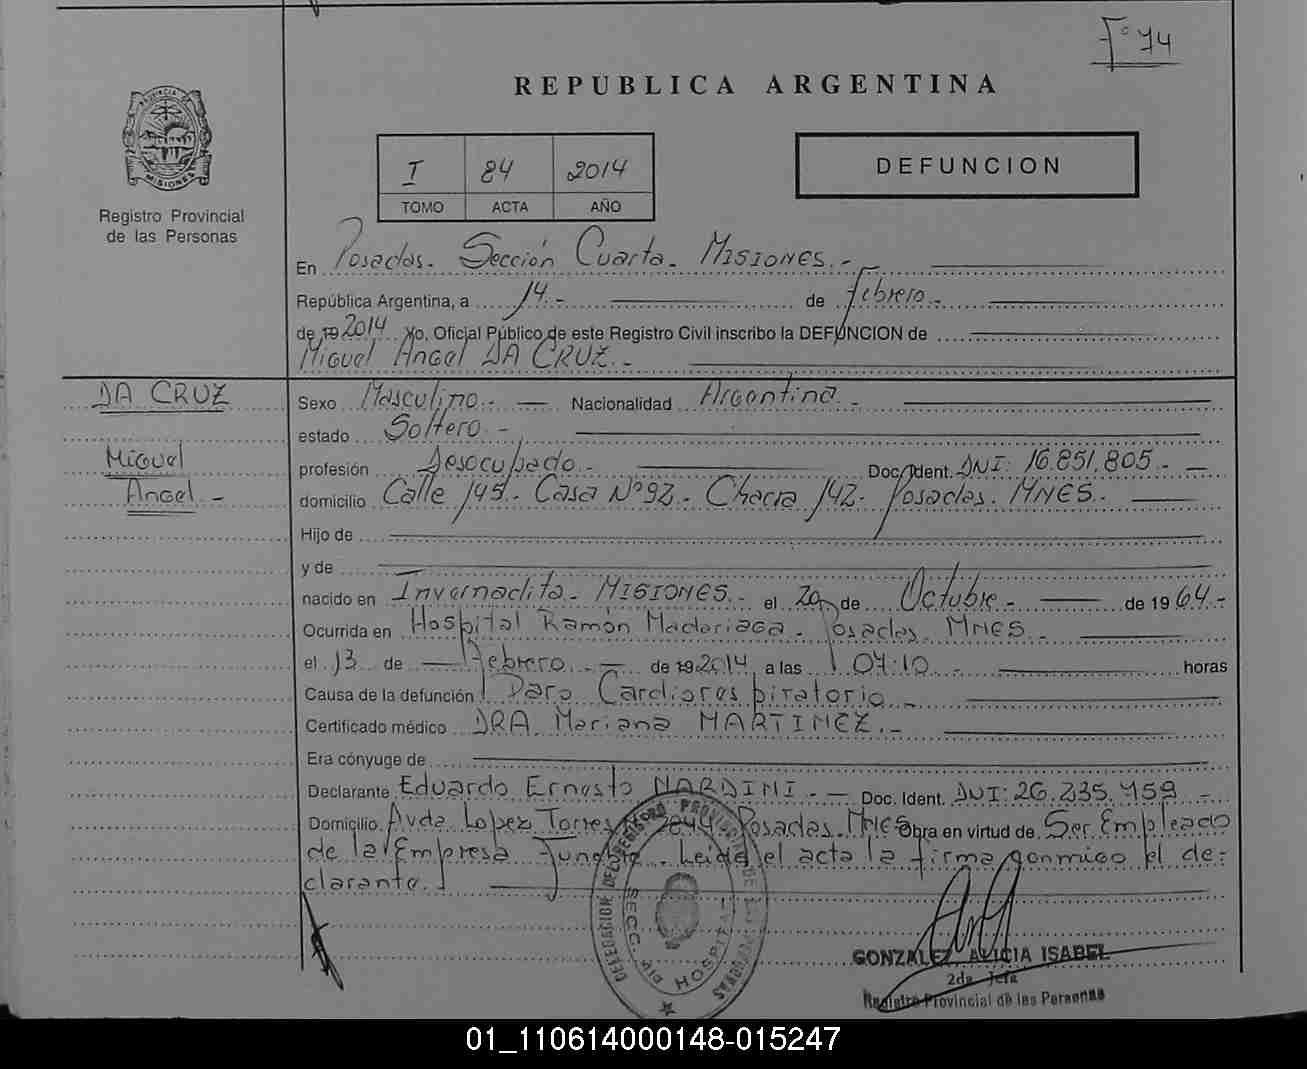 Fº 74
REPUBLICA ARGENTINA
PROVINCIA DE
MISIONES
Registro Provincial
de las Personas
I 84 2014
TOMO ACTA AÑO
DEFUNCION
En Posadas. Sección Cuarta. MISIONES.-
República Argentina, a 14.- de febrero.-
de 19 2014 Yo, Oficial Público de este Registro Civil inscribo la DEFUNCION de
Miguel Angel DA CRUZ.-
DA CRUZ
Miguel
Angel.-
Sexo Masculino.- Nacionalidad Argentina.-
estado Soltero.-
profesión Desocupado.- Doc. Ident. DNI: 16.851.805.-
domicilio Calle 145. Casa Nº 92.- Chacra 142. Posadas. MNES.-
Hijo de
y de
nacido en Invernadita. MISIONES.- el 20 de Octubre.- de 19 64.-
Ocurrida en Hospital Ramón Madariaga. Posadas. MNES.-
el 13 de febrero.- de 19 2014 a las 04:10.- horas
Causa de la defunción Paro Cardiorespiratorio.-
Certificado médico DRA. Mariana MARTINEZ.-
Era cónyuge de
Declarante Eduardo Ernesto NARDINI.- Doc. Ident. DNI: 26.235.459.-
Domicilio Avda Lopez Torres 2844 Posadas. MNES Obra en virtud de Ser Empleado
de la Empresa Funebre. Leida el acta la firma conmigo el de-
clarante.
DELEGACION DEL REGISTRO PROVINCIAL DE LAS PERSONAS
SECC. HOSPITAL
GONZALEZ ALICIA ISABEL
2da Jefa
Registro Provincial de las Personas
01_110614000148-015247